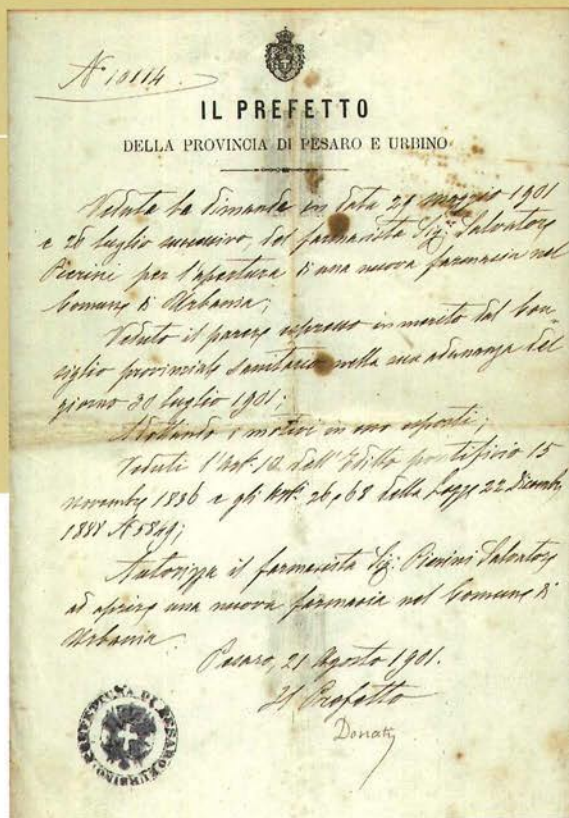 N° 10114
IL PREFETTO
DELLA PROVINCIA DI PESARO E URBINO
Veduta la dimanda in data 21 maggio 1901
e 26 luglio successivo, del farmacista Sig. Salvatore
Pierini per l'apertura di una nuova farmacia nel
Comune di Urbania;
Veduto il parere espresso in merito dal Con-
siglio provinciale sanitario nella sua adunanza del
giorno 30 luglio 1901;
Adottando i motivi in esso esposti;
Veduti l'Art. 10 dell'Editto pontificio 15
novembre 1836 e gli Art. 26, 68 della Legge 22 Dicembre
1888 N 5849;
Autorizza il farmacista Sig. Pierini Salvatore
ad aprire una nuova farmacia nel Comune di
Urbania.
Pesaro, 21 Agosto 1901.
Il Prefetto
Donati
PREFETTURA DI PESARO E URBINO